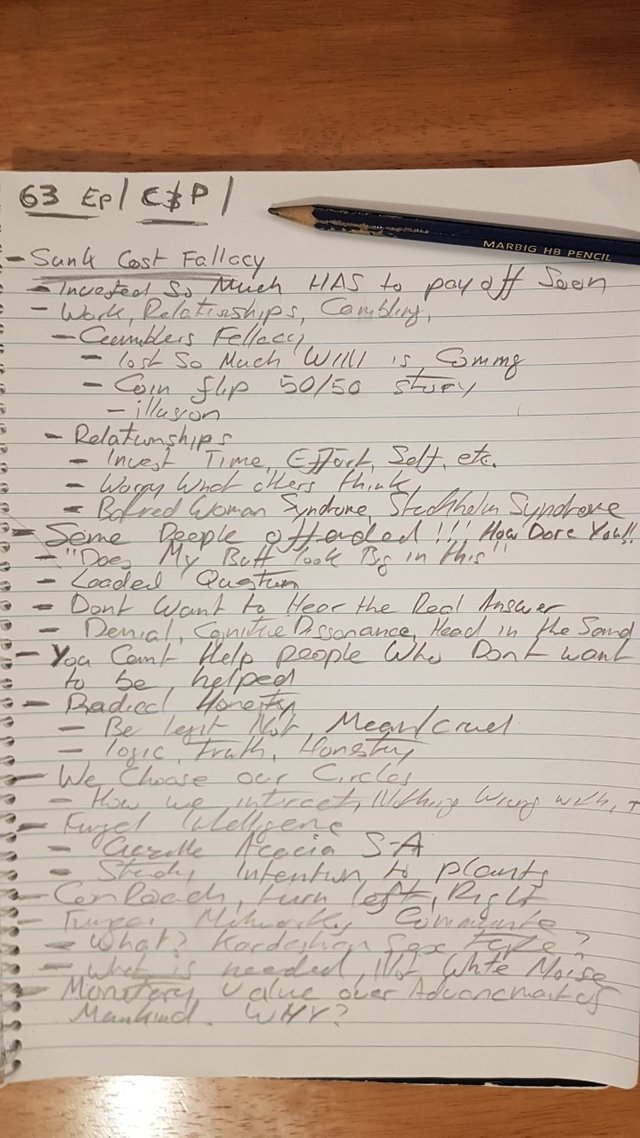 63 Ep/ C&P/
MARBIG HB PENCIL
- Sunk Cost Fallacy
- Invested So Much HAS to pay off Soon
- Work, Relationships, Gambling,
- Gamblers Fallacy
- lost So Much Will is Coming
- Coin flip 50/50 story
- illusion
- Relationships
- Invest Time, Effort, Self, etc.
- Worry What others think,
- Woman Syndrome, Stockholm Syndrome
- Some People offended!!! How Dare You!!
- "Does My Butt look Big in this"
- Loaded Question
- Dont Want to Hear the Real Answer
- Denial, Cognitive Dissonance, Head in the Sand
- You Cant Help people Who Dont want
to be helped
- Radical Honesty
- Be legit Not Mean/cruel
- logic, truth, Honesty
- We Choose our Circles
- How we interact, Nothing Wrong with it
- Fungal Intelligence
- Gazelle Acacia S-A
- Study, Intention to plants
- turn left, Right
- Fungal Networks Communicate
- What? Kardashian Sex Tape?
- What is needed, Not White Noise
- Monetary Value over Advancement of
Mankind. WHY?